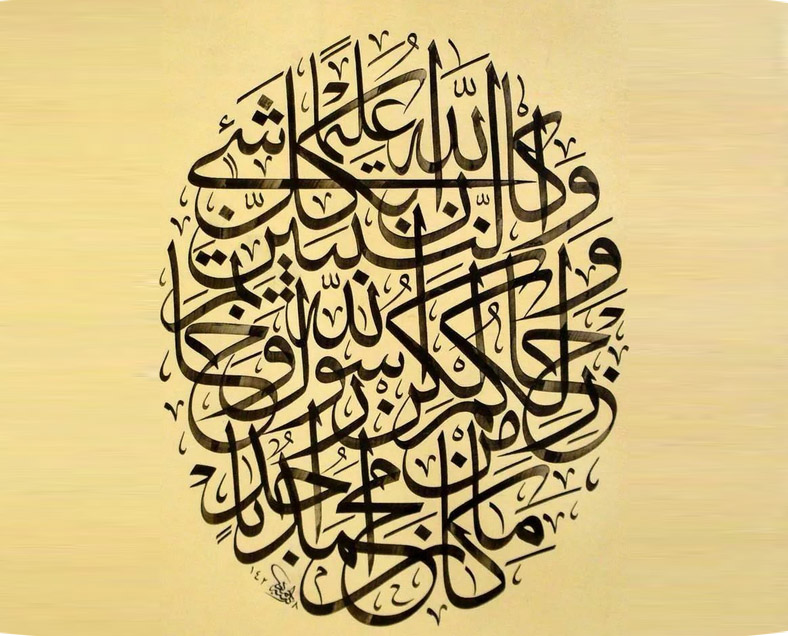 ما كان محمد أبا أحد
من رجالكم ولكن رسول الله وخاتم
النبيين وكان الله بكل شيء عليما